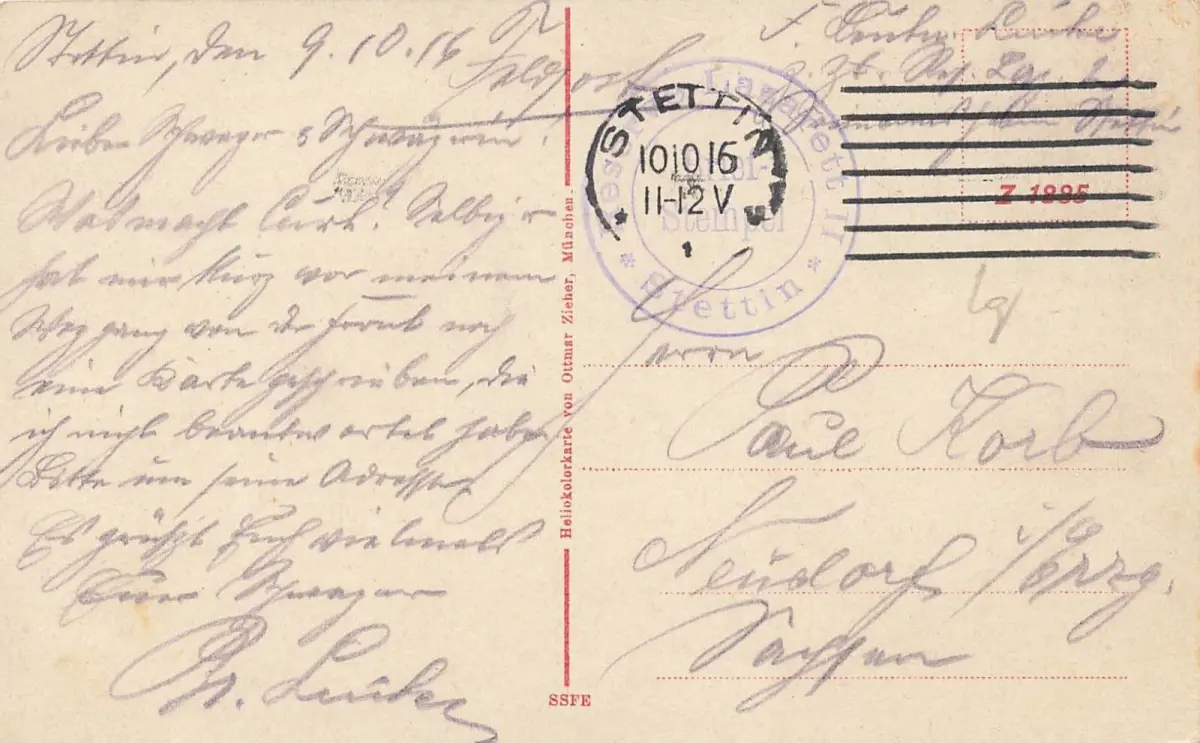 Stettin, den 9.10.16
Feldpost
Lieber Schwager & Schwägerin!
Was macht Curt? Selbiger
hat mir kurz vor meinem
Weggang von der Front noch
eine Karte geschrieben, die
ich nicht beantwortet habe
Bitte um seine Adresse.
Es grüßt Euch vielmals
Euer Schwager
Heliokolorkarte von Ottmar Zieher, München.
SSFE
z. Zt. Res. Laz. 2
Stettin
STETTIN
10 10 16
11-12 V
Reserve-Lazarett II
Brief-
Stempel
* Stettin *
Z 1885
Herrn
Paul Korb
Neudorf i/Erzg.
Sachsen